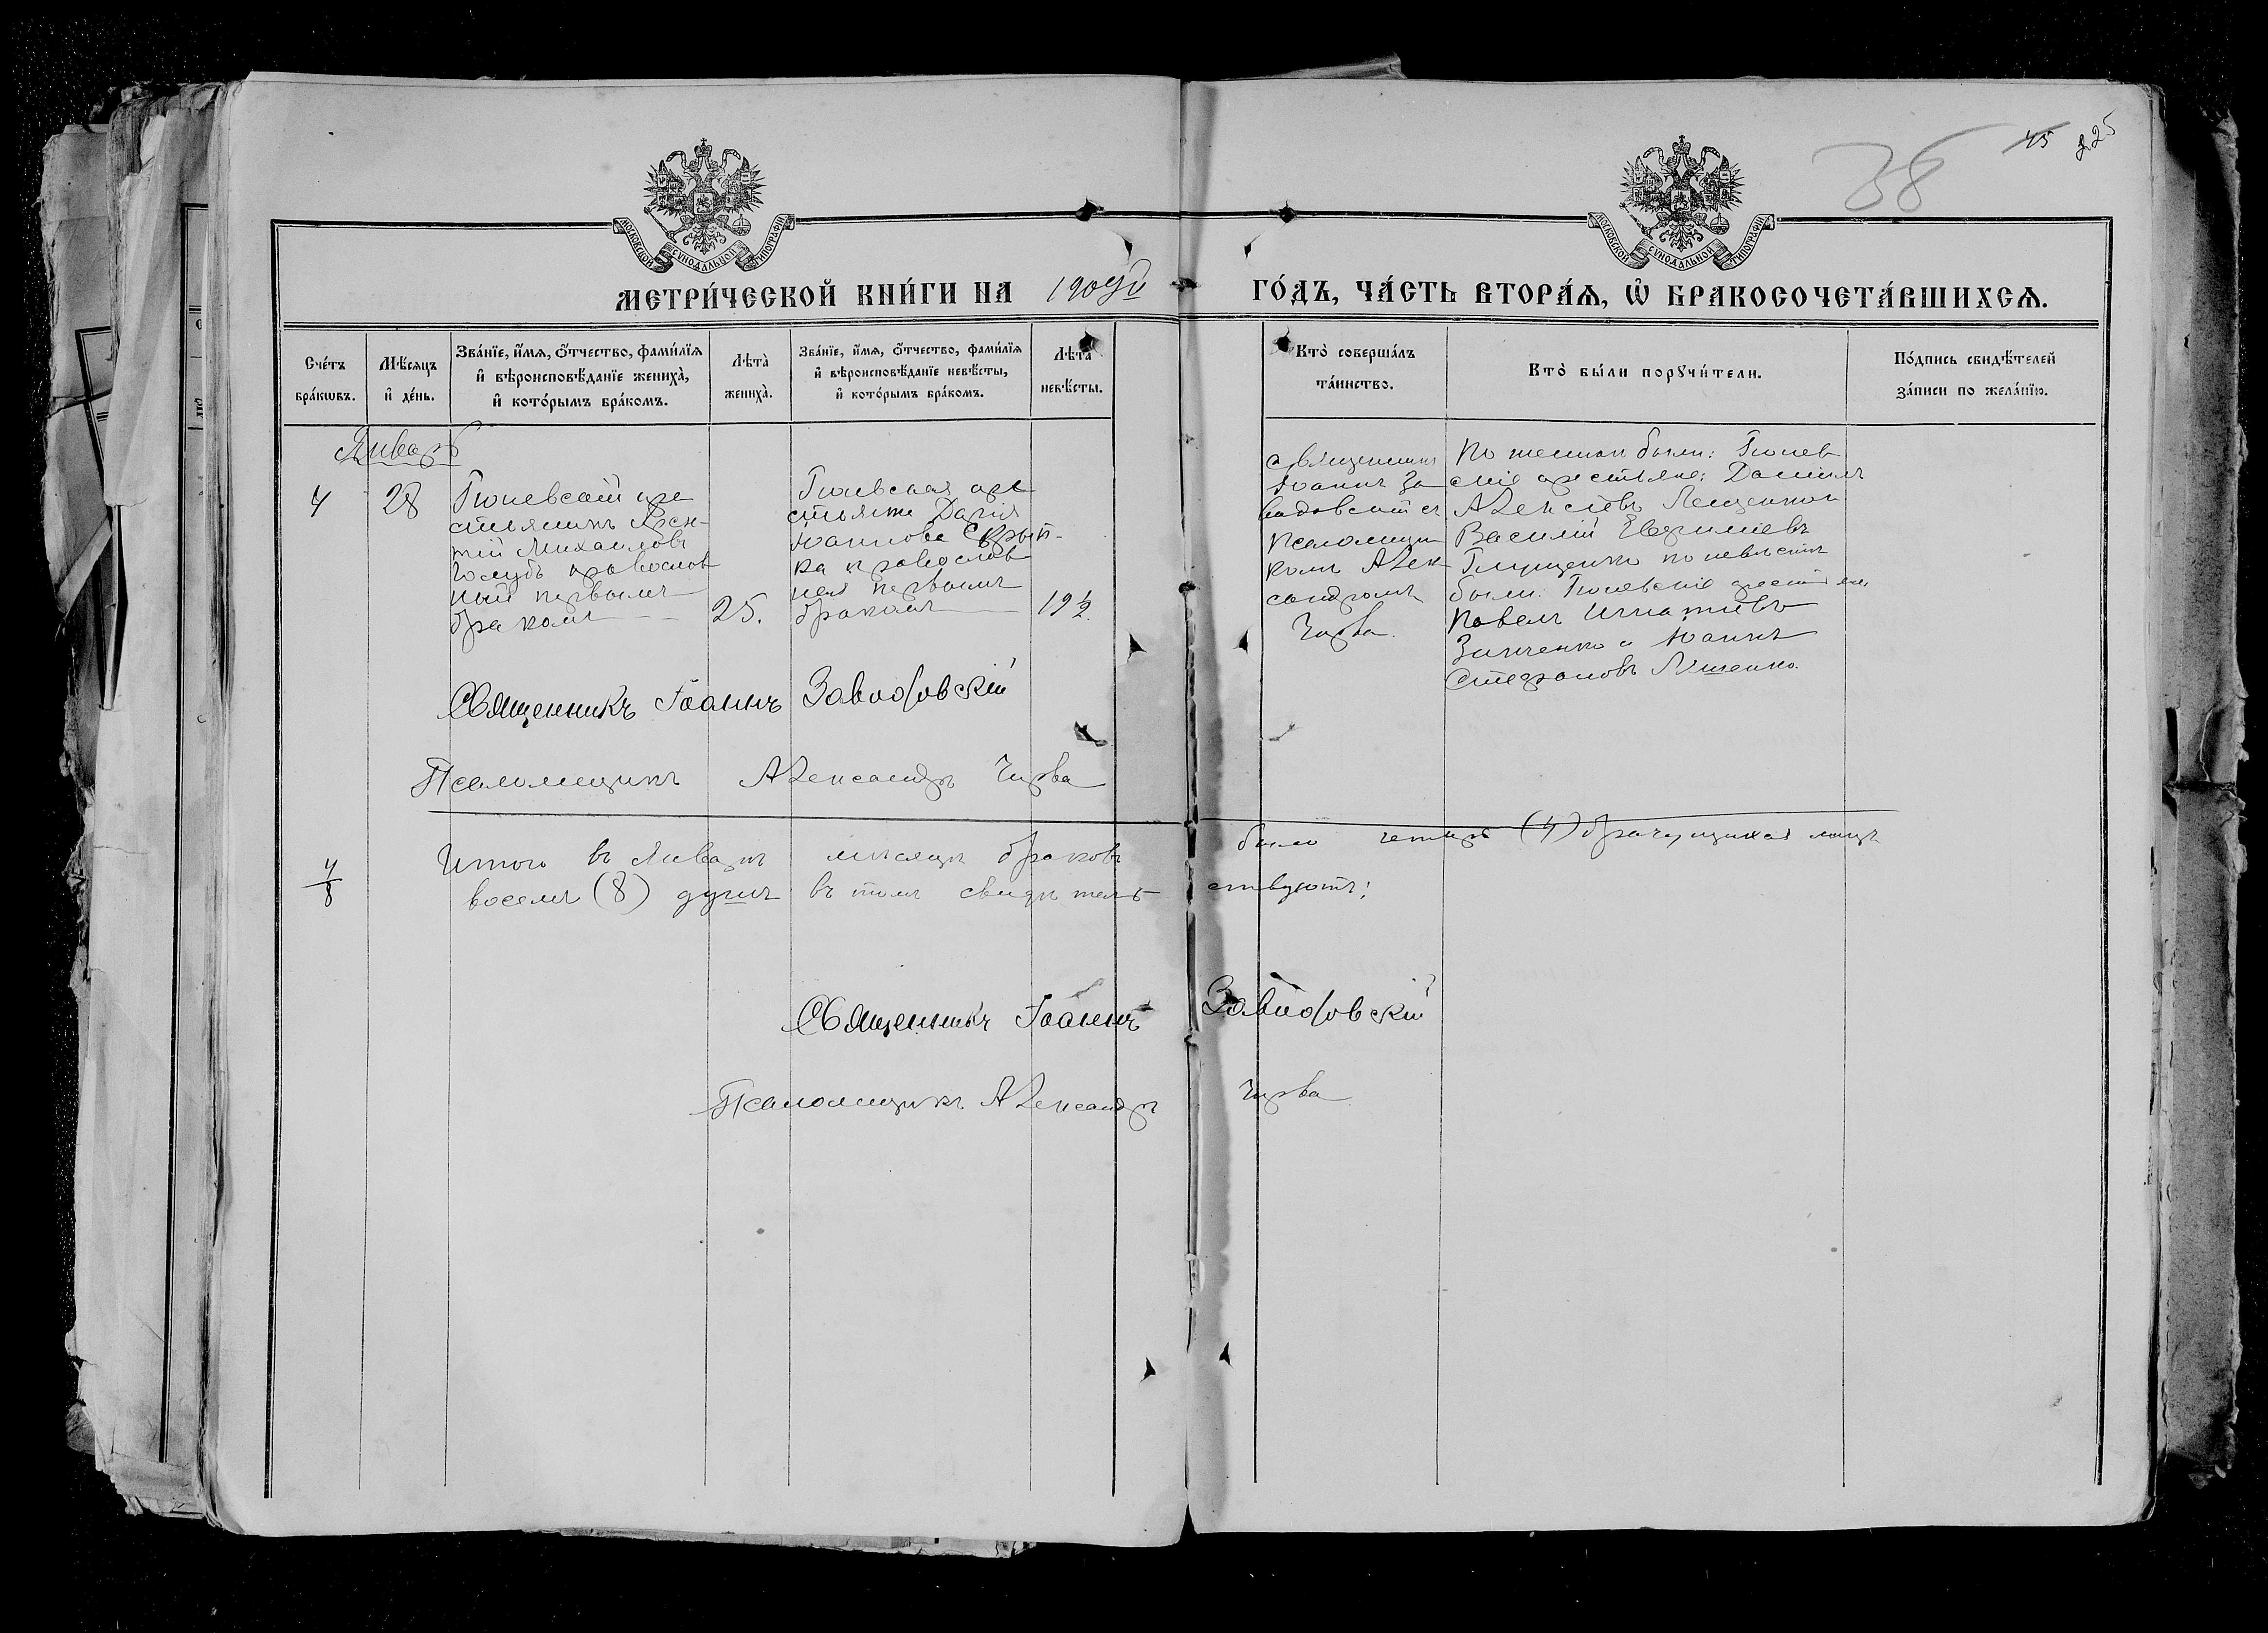 38
45
225
МОСКОВСКОЙ СѴНОДАЛЬНОЙ ТИПОГРАФІИ
МОСКОВСКОЙ СѴНОДАЛЬНОЙ ТИПОГРАФІИ
МЕТРИ́ЧЕСКОЙ КНИ́ГИ НА
ГО́ДЪ, ЧА́СТЬ ВТОРА́Ѧ, Ѽ БРАКОСОЧЕТА́ВШИХСѦ.
Сче́тъ бра́кѡвъ.
Мѣ́сѧцъ и҆ де́нь.
Зва́нїе, и҆́мѧ, ѻ҆́тчество, фами́лїѧ и҆ вѣроисповѣ́данїе жениха̀, и҆ кото́рымъ бра́комъ.
Лѣта̀ жениха̀.
Зва́нїе, и҆́мѧ, ѻ҆́тчество, фами́лїѧ и҆ вѣроисповѣ́данїе невѣ́сты, и҆ кото́рымъ бра́комъ.
Лѣта̀ невѣ́сты.
Кто̀ соверша́лъ та́инство.
Кто̀ бы́ли порꙋчи́тели.
По́дпись свидѣ́телей за́писи по жела́нїю.
Январь
4
28
крестьянинъ
Михаиловъ
Голубь православ
ный первымъ
бракомъ
25.
кре
стьянка Дарія
Іоаннова Скрып-
ка православ
ная первымъ
бракомъ
19½
Священникъ
Іоаннъ За
вадовскій съ
псаломщи
комъ Алек
сандромъ
Чирва.
По женихѣ были:
скіе крестьяне: Даніилъ
Алексіевъ Лещенко и
Василій Евфиміевъ
Глущенко по невѣстѣ
были: крестьяне
Павелъ Игнатіевъ
Зинченко и Іоаннъ
Стефановъ
Священникъ Іоаннъ Завадовскій
Псаломщикъ Александръ Чирва
4
8
Итого въ Январѣ мѣсяцѣ браковъ было четыре (4) брачущихся лицъ
восемь (8) душъ въ томъ свидѣтельствуютъ:
Священникъ Іоаннъ Завадовскій
Псаломщикъ Александръ Чирва